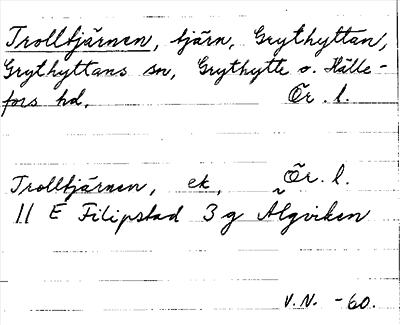 Trolltjärnen, tjärn, Grythyttan,
Grythyttans sn, Grythytte o. Hälle-
fors hd. Ör. l.
Trolltjärnen, ek. Ör. l.
11 E Filipstad 3 g Älgviken
V.N. -60.